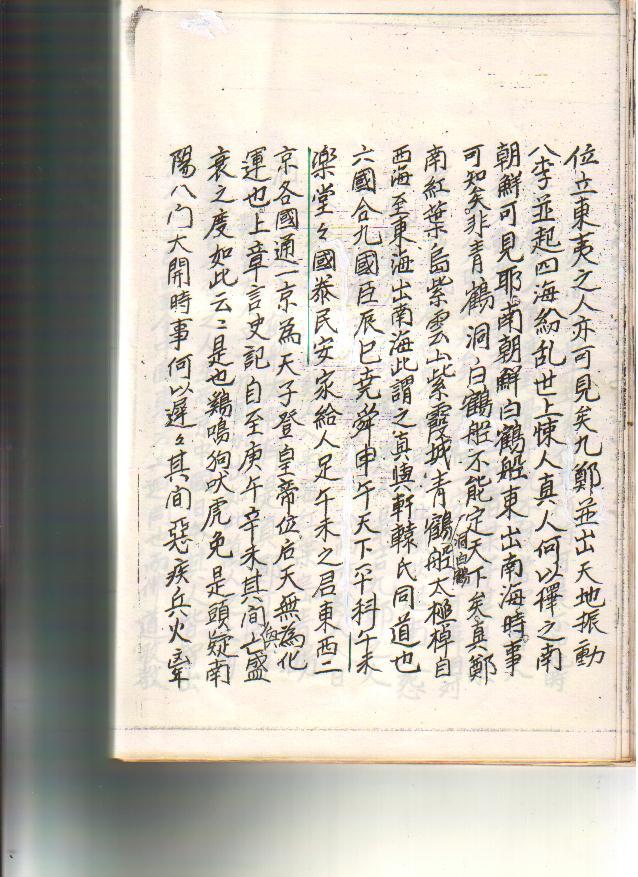 位立東夷之人亦可見矣九鄭並出天地振動
八李並起四海紛乱世上悚人真人何以擇之南
朝鮮可見耶南朝鮮白鶴船東出南海時事
可知矣非青鶴洞白鶴船不能定天下矣真鄭
南紅葉島紫雲山紫霞城青鶴洞白鶴船太極棹自
西海至東海出南海此謂之真與軒轅氏同道也
六國合九國臣辰巳堯舜申午天下平科午未
樂堂々國泰民安家給人足午未之君東西二
京各國通一京為天子登皇帝位后天無為化
運也上章言史記自至庚午辛未其間亡盛興
衰之度如此云云是也鷄鳴狗吠虎兔是頭疑南
陽八門大開時事何以遲々其間惡疾兵火